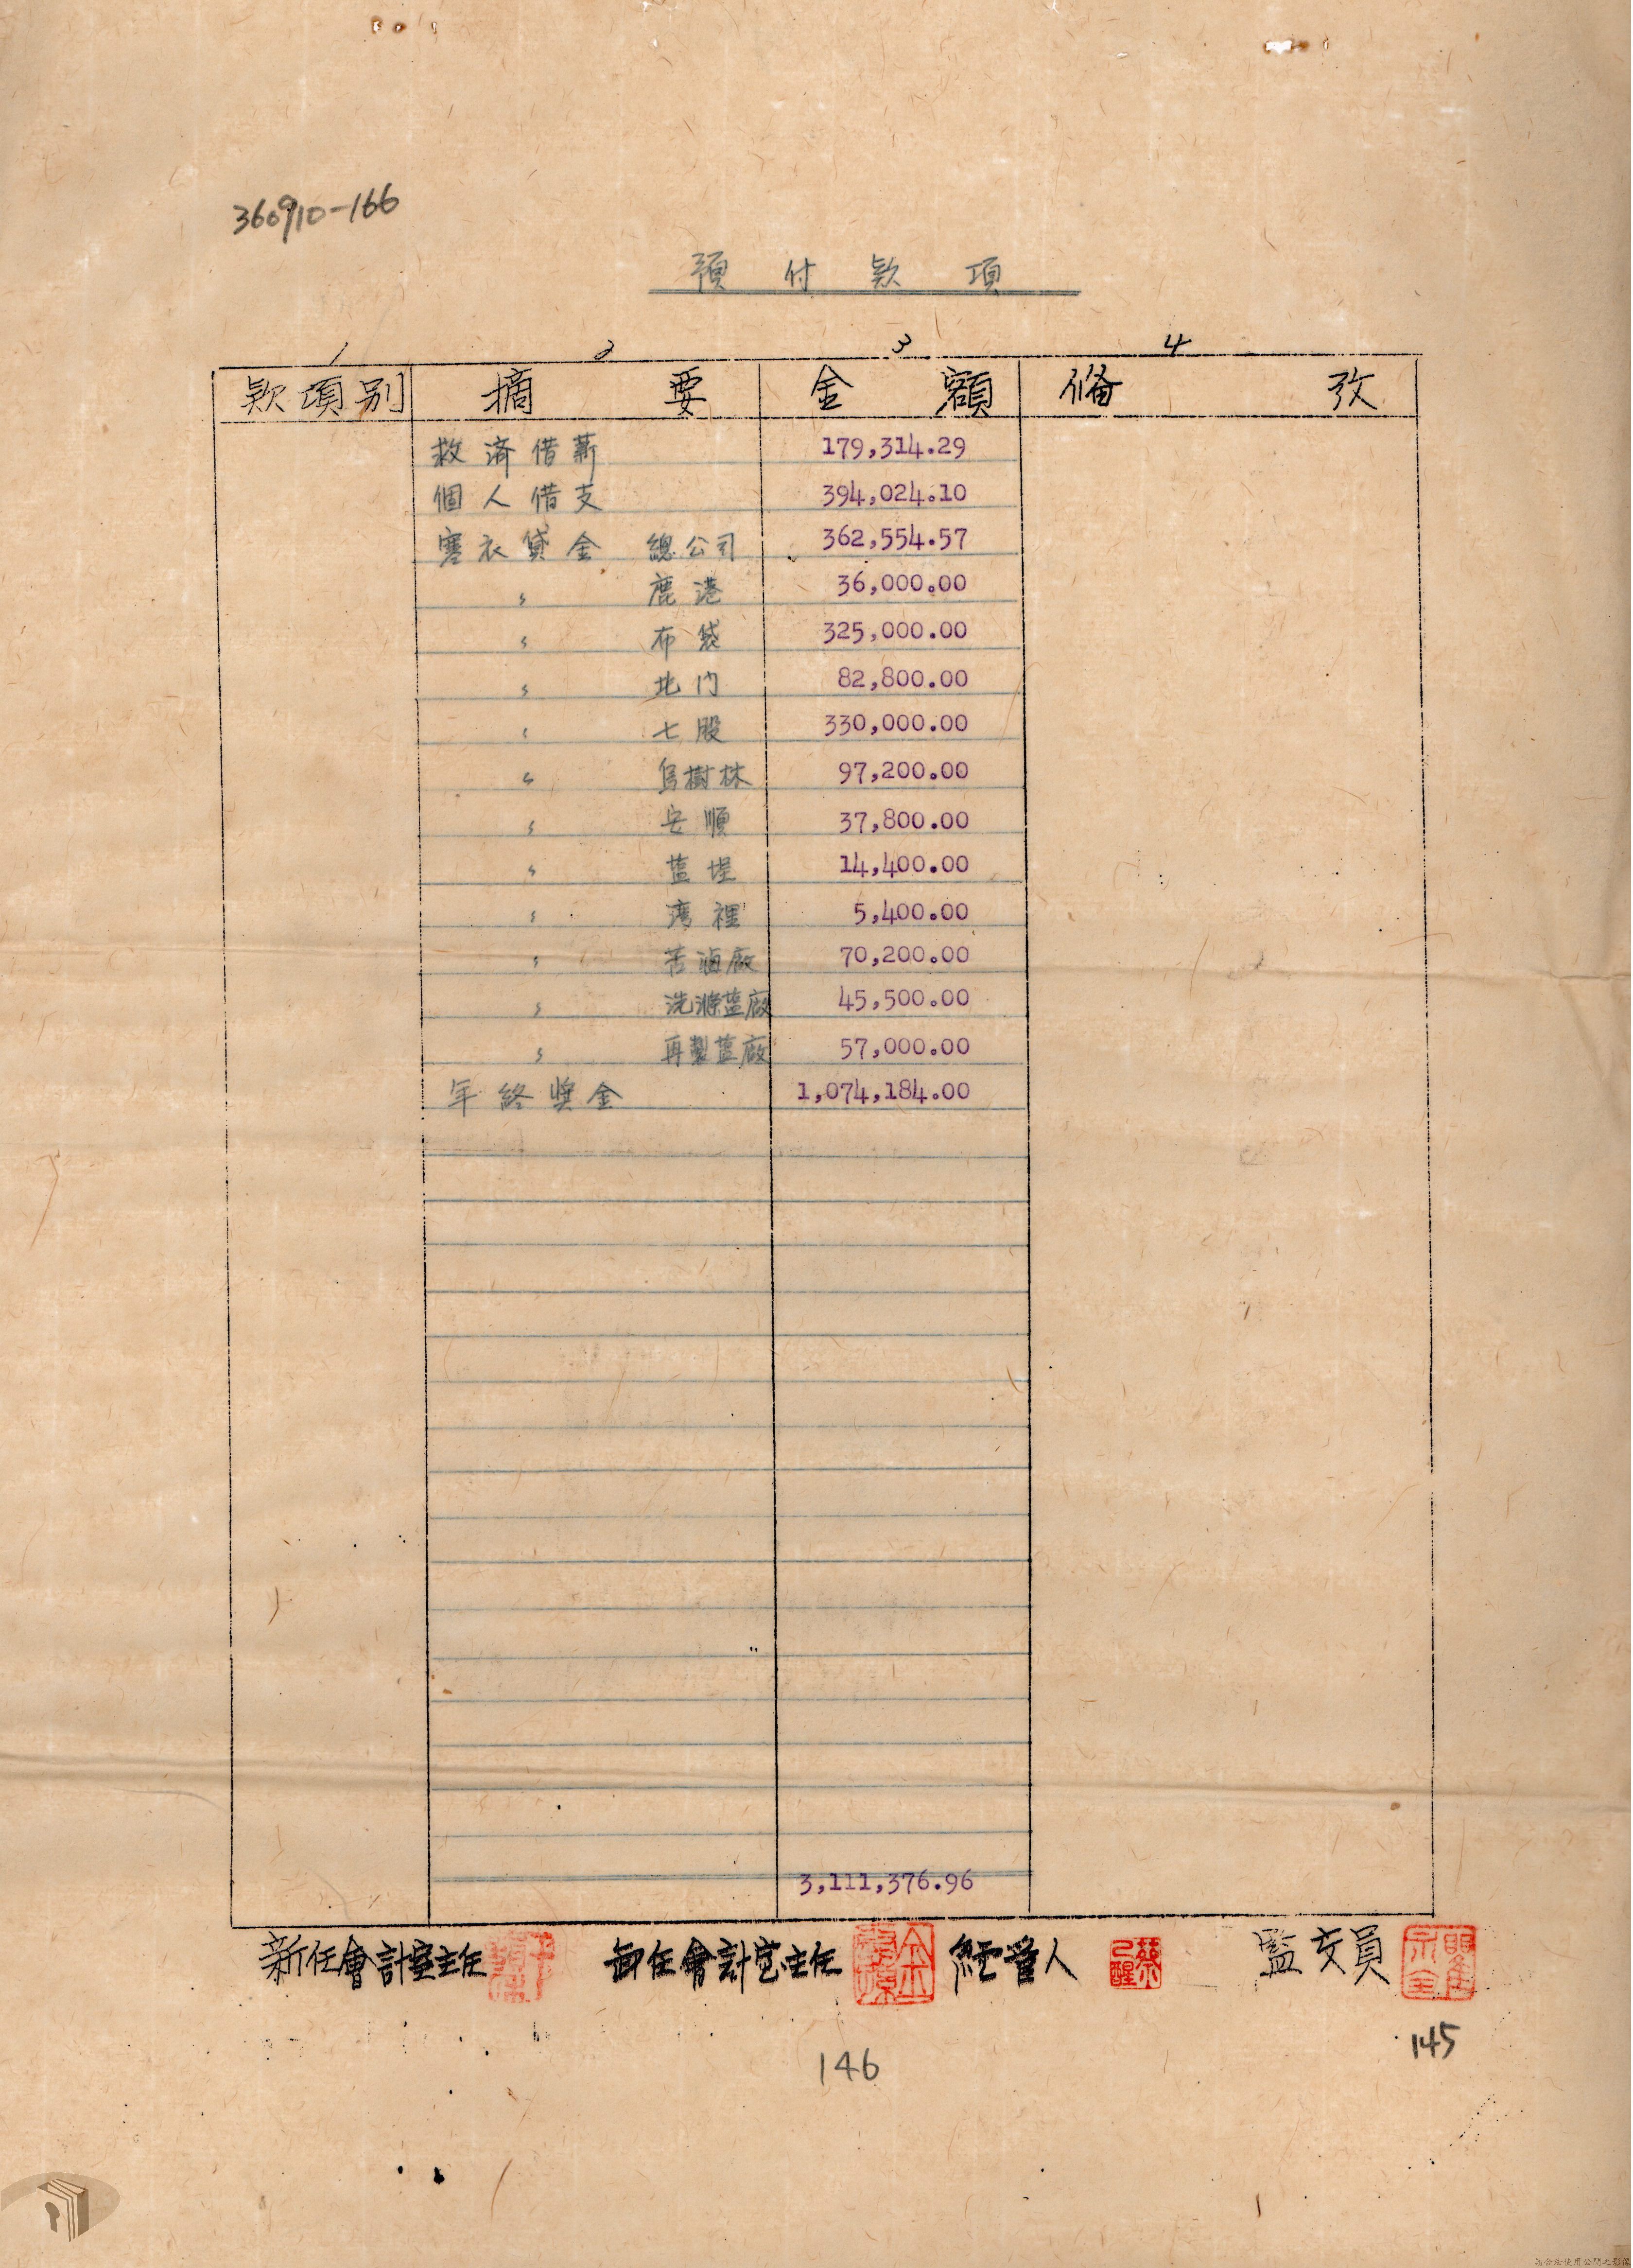 360910-166
預付款項
1 2 3 4
款項別 摘要 金額 備攷
救濟借薪 179,314.29
個人借支 394,024.10
寒衣貸金 總公司 362,554.57
〃 鹿港 36,000.00
〃 布袋 325,000.00
〃 北门 82,800.00
〃 七股 330,000.00
〃 烏樹林 97,200.00
〃 安順 37,800.00
〃 塩埕 14,400.00
〃 湾裡 5,400.00
〃 苦滷廠 70,200.00
〃 洗滌塩廠 45,500.00
〃 再製塩廠 57,000.00
年終獎金 1,074,184.00
3,111,376.96
新任會計室主任 卸任會計室主任 經管人 蔡己醒 監交員
145
146
請合法使用公開之影像